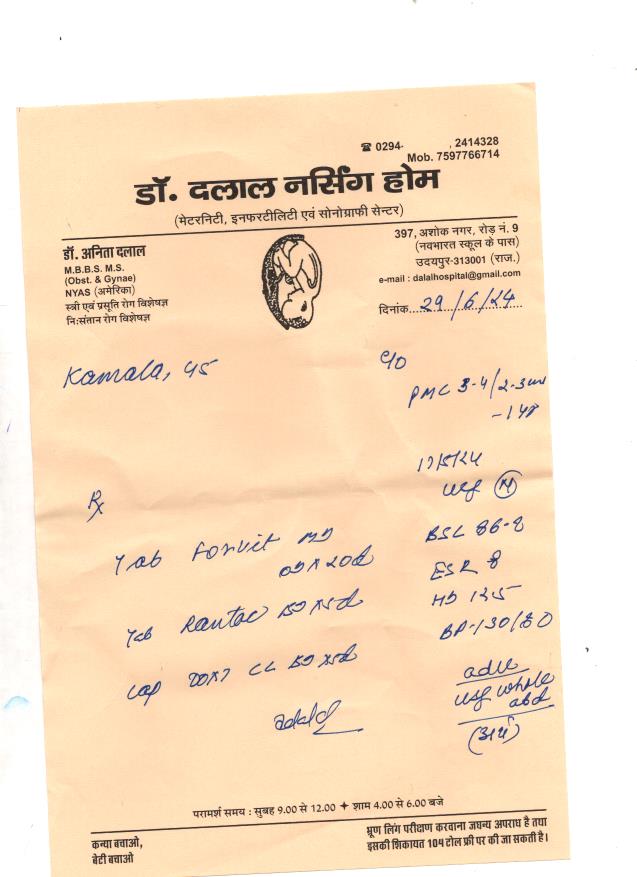 ☎ 0294- , 2414328
Mob. 7597766714
डॉ. दलाल नर्सिंग होम
(मेटरनिटी, इनफरटीलिटी एवं सोनोग्राफी सेन्टर)
डॉ. अनिता दलाल
M.B.B.S. M.S.
(Obst. & Gynae)
NYAS (अमेरिका)
स्त्री एवं प्रसूति रोग विशेषज्ञ
नि:संतान रोग विशेषज्ञ
397, अशोक नगर, रोड़ नं. 9
(नवभारत स्कूल के पास)
उदयपुर-313001 (राज.)
e-mail : dalalhospital@gmail.com
दिनांक 29/6/24
Kamala, 45
PMC 3-4/2-3
17/5/24
usg (N)
Rx
Tab
OD x 20d
BSL 86-8
ESR 8
Tab Rantac BD x5d
Hb 12.5
BP-130/80
Cap CL BD x5d
adv
usg whole
abd
परामर्श समय : सुबह 9.00 से 12.00 ✦ शाम 4.00 से 6.00 बजे
कन्या बचाओ,
बेटी बचाओ
भ्रूण लिंग परीक्षण करवाना जघन्य अपराध है तथा
इसकी शिकायत 104 टोल फ्री पर की जा सकती है।